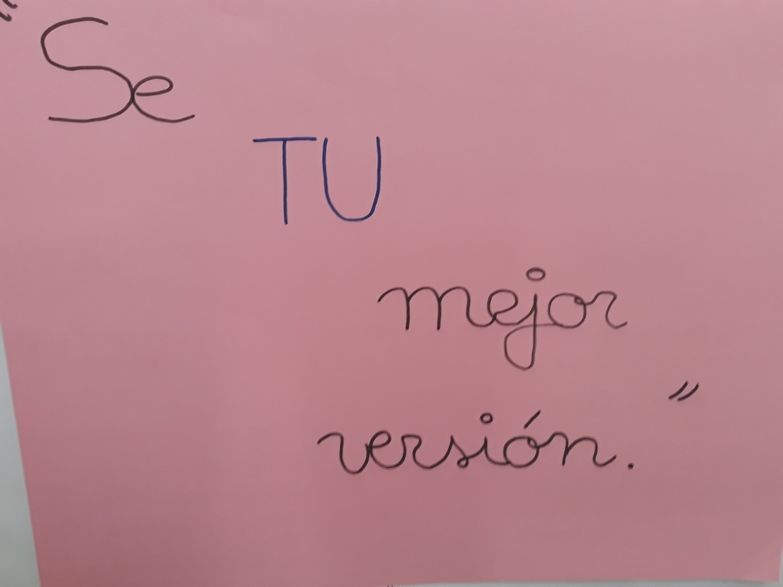 "Se
TU
mejor
versión."